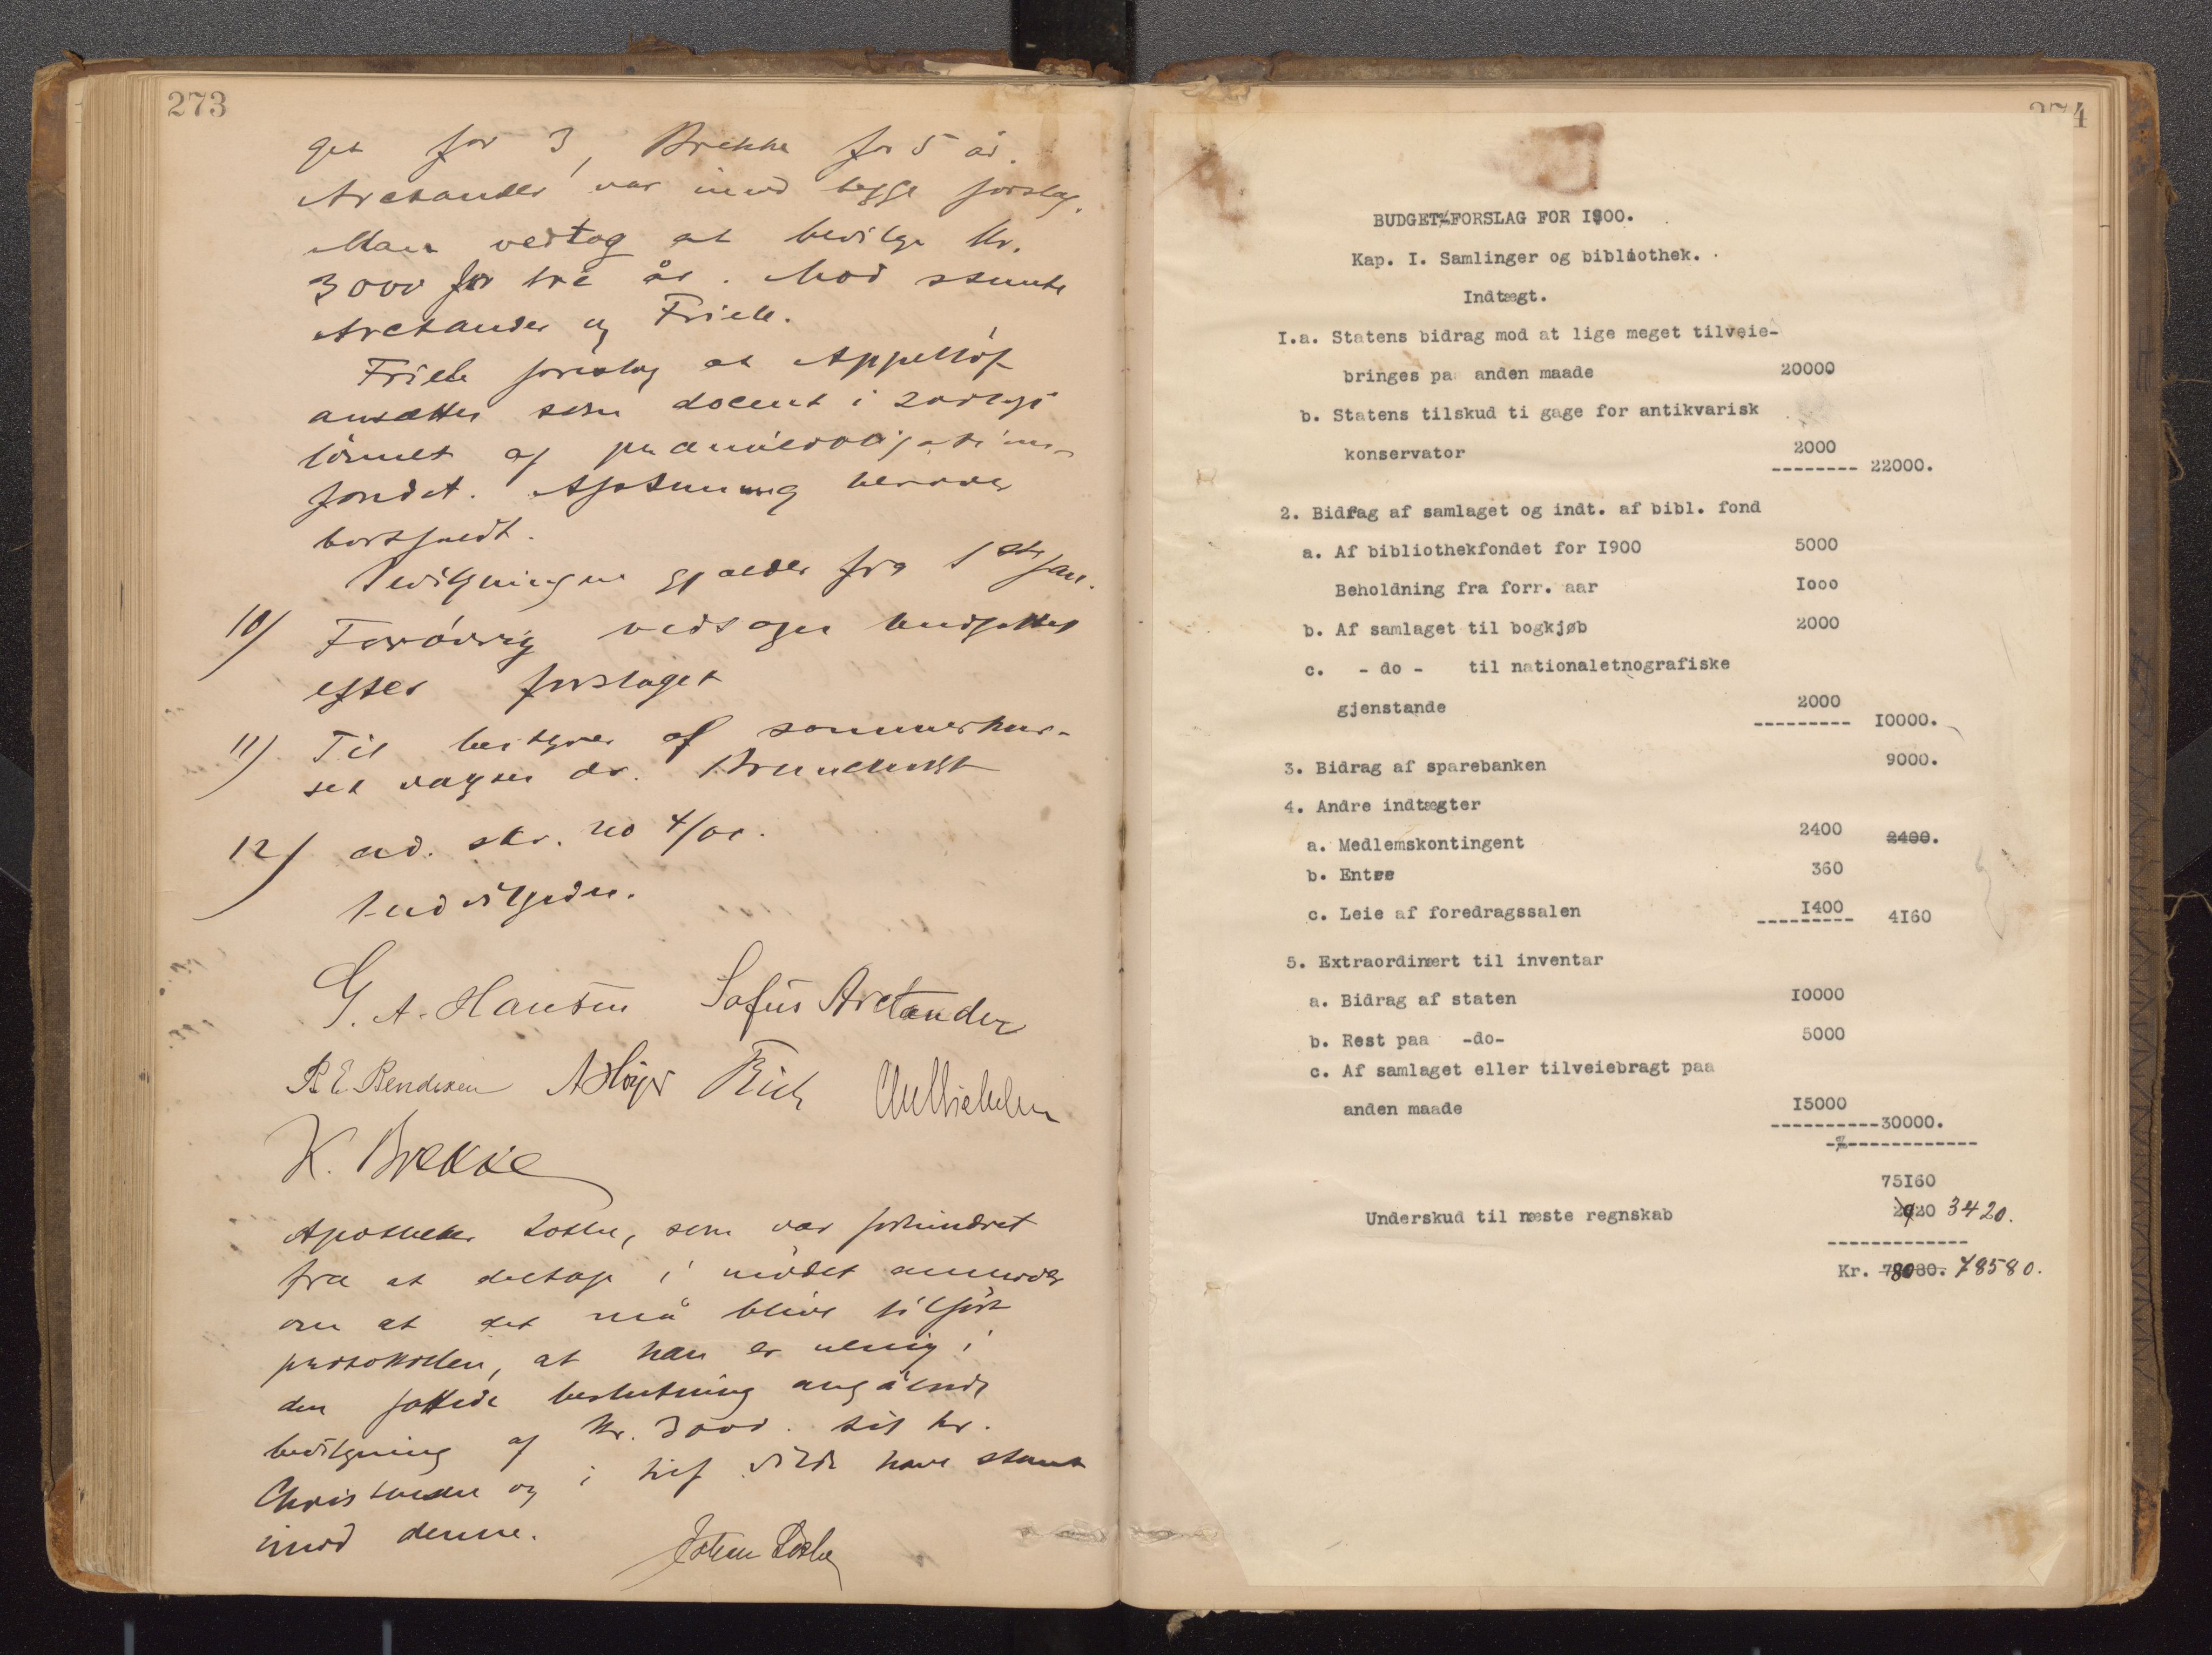 273
get for 3, Brekke for 5 år.
Arctander var imod begge forslag.
Man vedtog at bevilge Kr.
3000 for tre år. Mod stemte
Arctander og Friele.
Friele foreslog at Appelløf
ansættes som docent i zoologi
lønnet af præmieobligations-
fondet. Afstemning herover
bortfaldt.
Bevilgningen gjælder fra 1ste jan.
10) Forøvrig vedtoges budgettet
efter forslaget
11) Til bestyrer af sommerkur-
set valgtes dr. Brunchorst
12) ad. skr. no 4/00.
Indvilgedes.
G. A. Hansen Sofus Arctander
B E Bendixen A Høyer
K. Brekke
Apotheker Lothe, som var forhindret
fra at deltage i mødet anmoder
om at det må blive tilført
protokollen, at han er uenig i
den fattede beslutning angående
bevilgning af Kr. 3000. til hr.
Christensen og i tilf vilde have stemt
imod denne.
Johan Lothe
274
BUDGET-FORSLAG FOR I900.
Kap. I. Samlinger og bibliothek.
Indtægt.
I.a. Statens bidrag mod at lige meget tilveie-
bringes pa anden maade 20000
b. Statens tilskud ti gage for antikvarisk
konservator 2000
-------- 22000.
2. Bidrag af samlaget og indt. af bibl. fond
a. Af bibliothekfondet for I900 5000
Beholdning fra forr. aar Iooo
b. Af samlaget til bogkjøb 2000
c. - do - til nationaletnografiske
gjenstande 2000
--------- I0000.
3. Bidrag af sparebanken 9000.
4. Andre indtægter
a. Medlemskontingent 2400 2400.
b. Entree 360
c. Leie af foredragssalen I400
--------- 4I60
5. Extraordinært til inventar
a. Bidrag af staten I0000
b. Rest paa -do- 5000
c. Af samlaget eller tilveiebragt paa
anden maade I5000
----------30000.
--------------
75I60
Underskud til næste regnskab 2920 3420.
-------------
Kr. 78080. 78580.